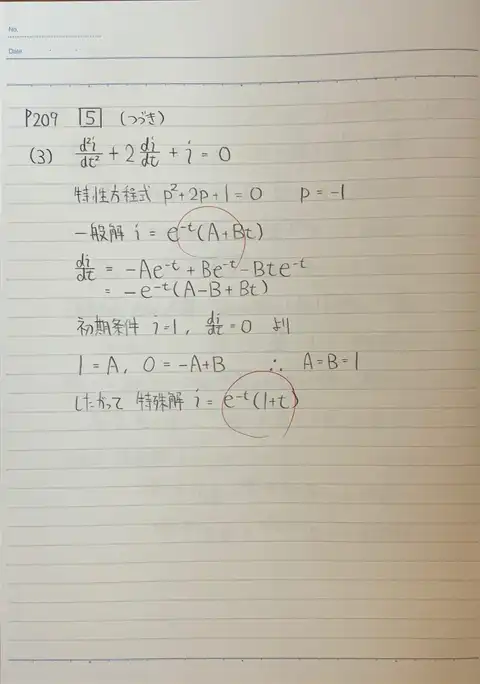 No.
Date
P209 5 (つづき)
(3) d²i/dt² + 2 di/dt + i = 0
特性方程式 p²+2p+1=0 p=-1
一般解 i = e⁻ᵗ(A+Bt)
di/dt = -Ae⁻ᵗ + Be⁻ᵗ - Bte⁻ᵗ
= -e⁻ᵗ(A-B+Bt)
初期条件 i=1, di/dt=0 より
1=A, 0=-A+B ∴ A=B=1
したがって 特殊解 i = e⁻ᵗ(1+t)